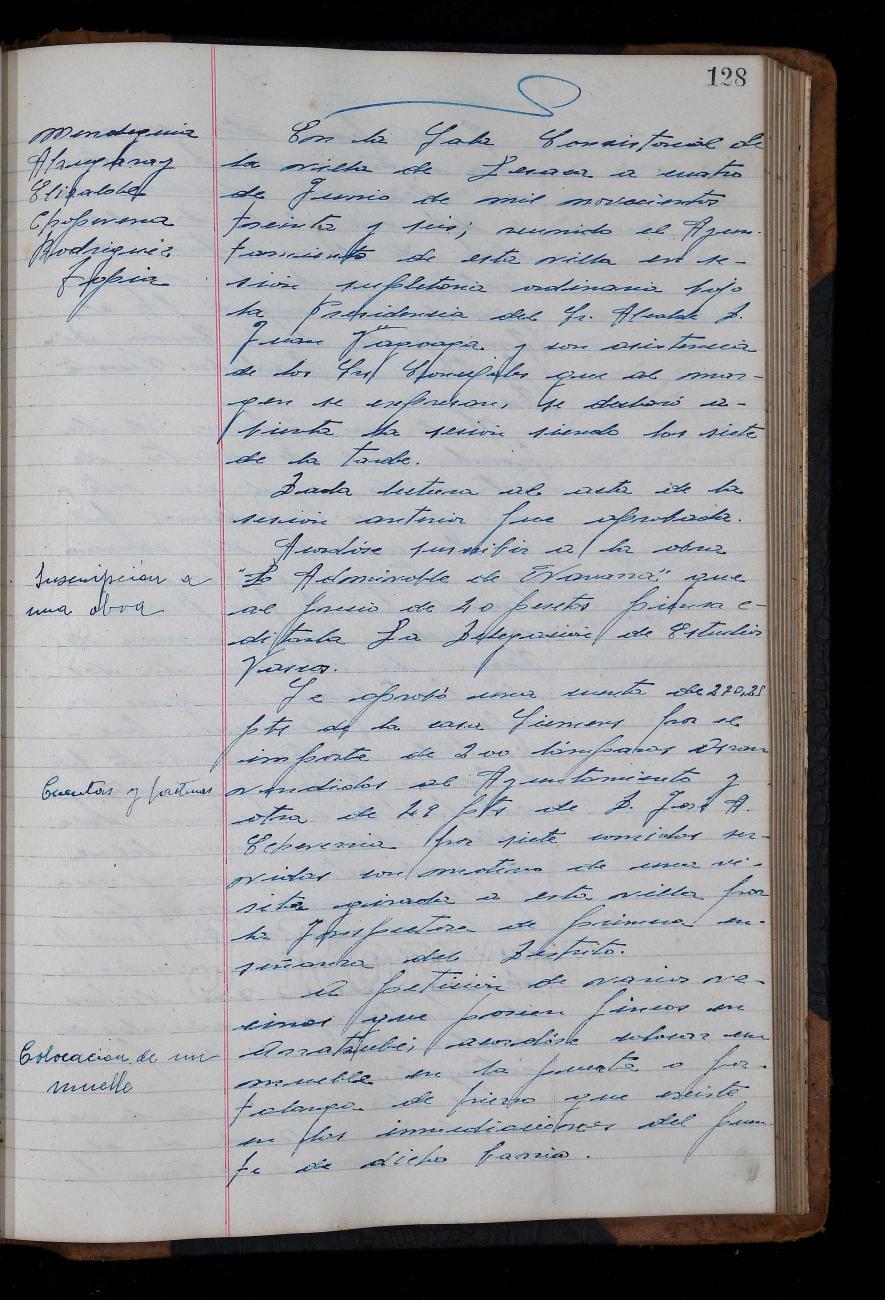 128
Mendeguia
Alzugaray
Elizalde
Echeverria
Rodriguez
Tapia
En la Sala Consistorial de
la villa de Lesaca a cuatro
de Junio de mil novecientos
treinta y seis; reunido el Ayun-
tamiento de esta villa en se-
sión supletoria ordinaria bajo
la Presidencia del Sr. Alcalde D.
Juan y con asistencia
de los Srs Concejales que al mar-
gen se expresan, se declaró a-
bierta la sesión siendo las siete
de la tarde.
Dada lectura al acta de la
sesión anterior fue aprobada.
Suscripción a
una obra
Acordóse suscribir a la obra
"Lo Admirable de Navarra" que
al precio de 40 pesetas piensa e-
ditarla La Delegación de Estudios
Vascos.
Cuentas y facturas
Se aprobó una cuenta de 270,25
pts de la casa Siemens por el
importe de 200 lámparas Osram
vendidas al Ayuntamiento y
otra de 49 pts de D. José A.
Echeverria por siete comidas ser-
vidas con motivo de una vi-
sita girada a esta villa por
la Inspectora de primera en-
señanza del Distrito.
Colocacion de un
muelle
A petición de varios ve-
cinos que poseen fincas en
acordóse colocar un
muelle en la puerta o por-
talanga de hierro que existe
en las inmediaciones del puen-
te de dicho barrio.